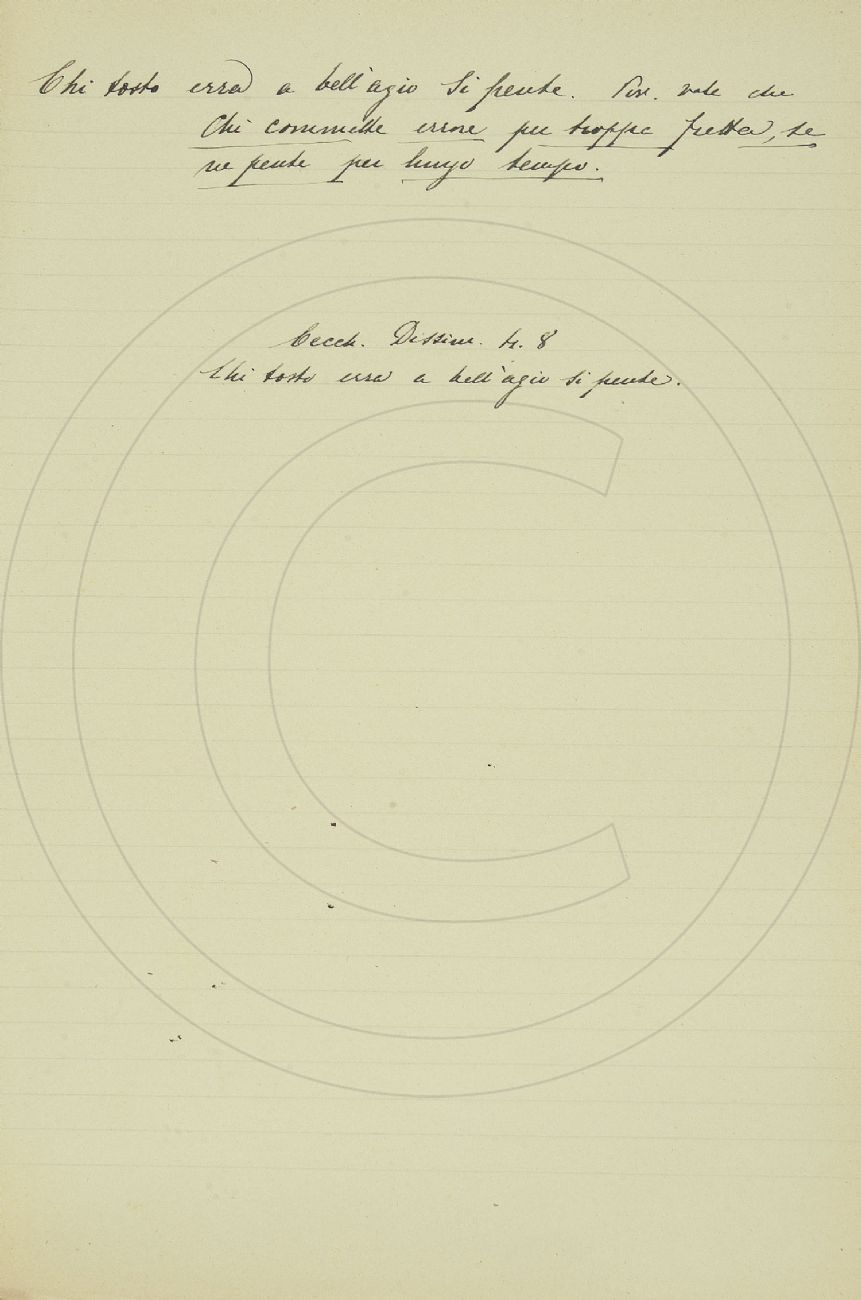 Chi tosto erra a bell'agio si pente. Prov. vale che
Chi commette errore per troppa fretta, se
ne pente per lungo tempo.
Cecch. Dissim. 4. 8
Chi tosto erra a bell'agio si pente.